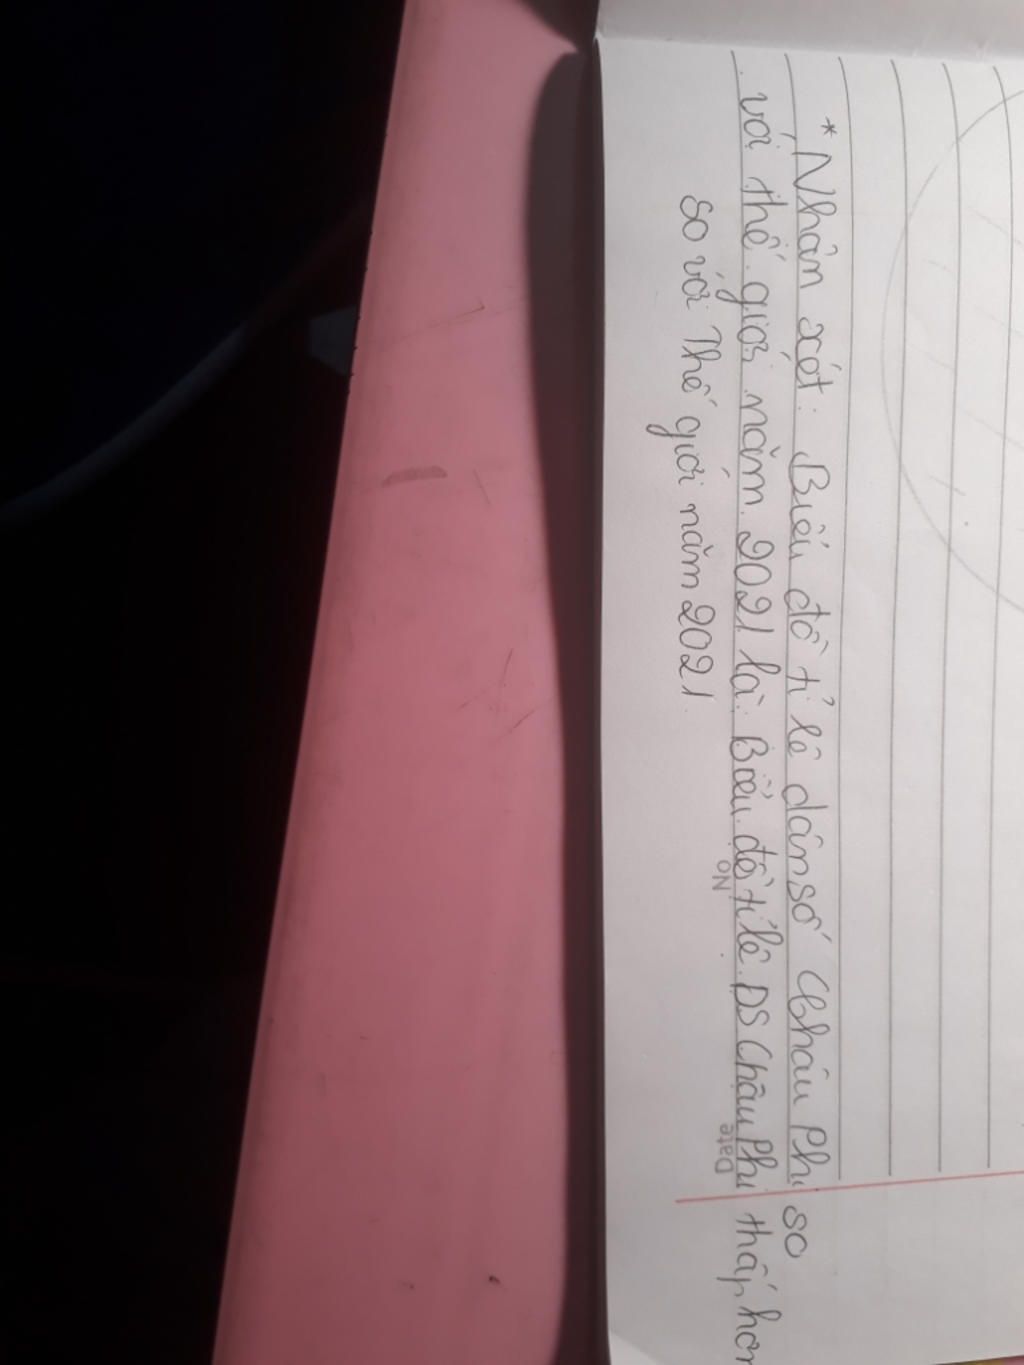 * Nhận xét: Biểu đồ tỉ lệ dân số Châu Phi so
với thế giới năm 2021 là: Biểu đồ tỉ lệ DS Châu Phi thấp hơn
so với Thế giới năm 2021.
No
Date